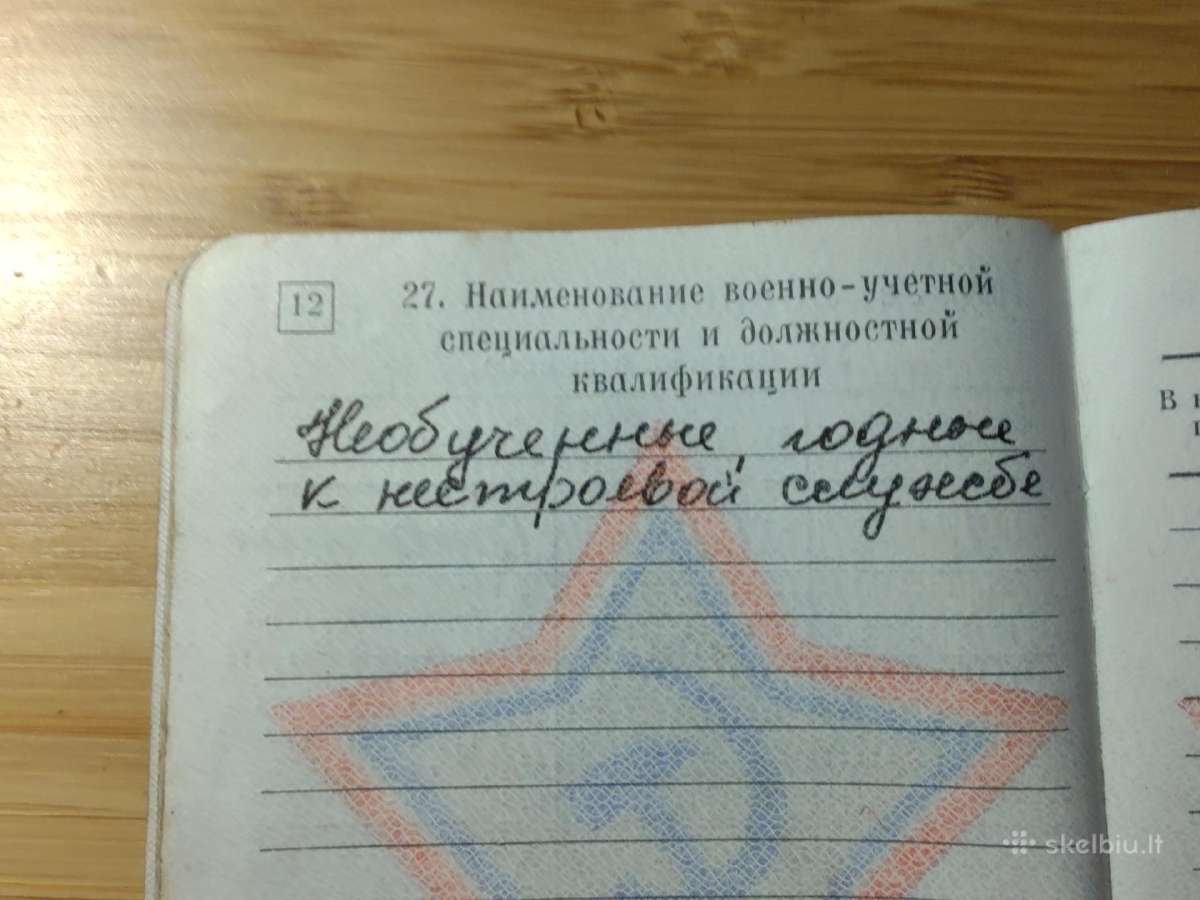 12
27. Наименование военно-учетной
специальности и должностной
квалификации
Необученные, годные
к нестроевой службе
В
skelbiu.lt